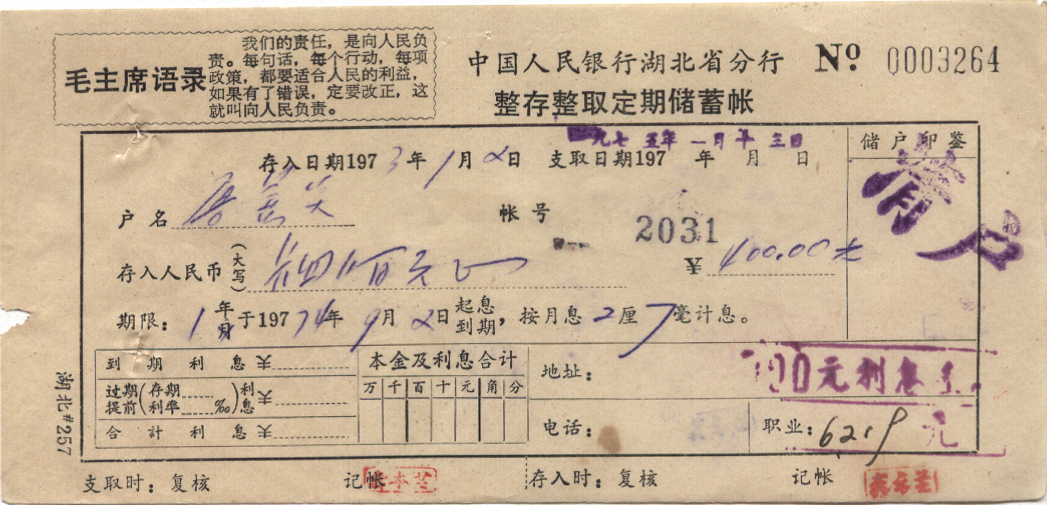 毛主席语录
我们的责任，是向人民负
责。每句话，每个行动，每项
政策，都要适合人民的利益，
如果有了错误，定要改正，这
就叫向人民负责。
中国人民银行湖北省分行 № 0003264
整存整取定期储蓄帐
存入日期1973年1月2日 支取日期197 年 月 日
九七五年一月十三日
储户印鉴
清
户名 帐号 2031
存入人民币(大写) 肆佰元正 ¥400.00元
期限：1年月于1974年9月2日起息到期，按月息2厘7毫计息。
到期利息 本金及利息合计
过期提前(存期 利率 ‰)利息 万千百十元角分
合计利息
地址：
元利息
电话： 职业：6219
元
湖北#257
支取时：复核 记帐 存入时：复核 记帐